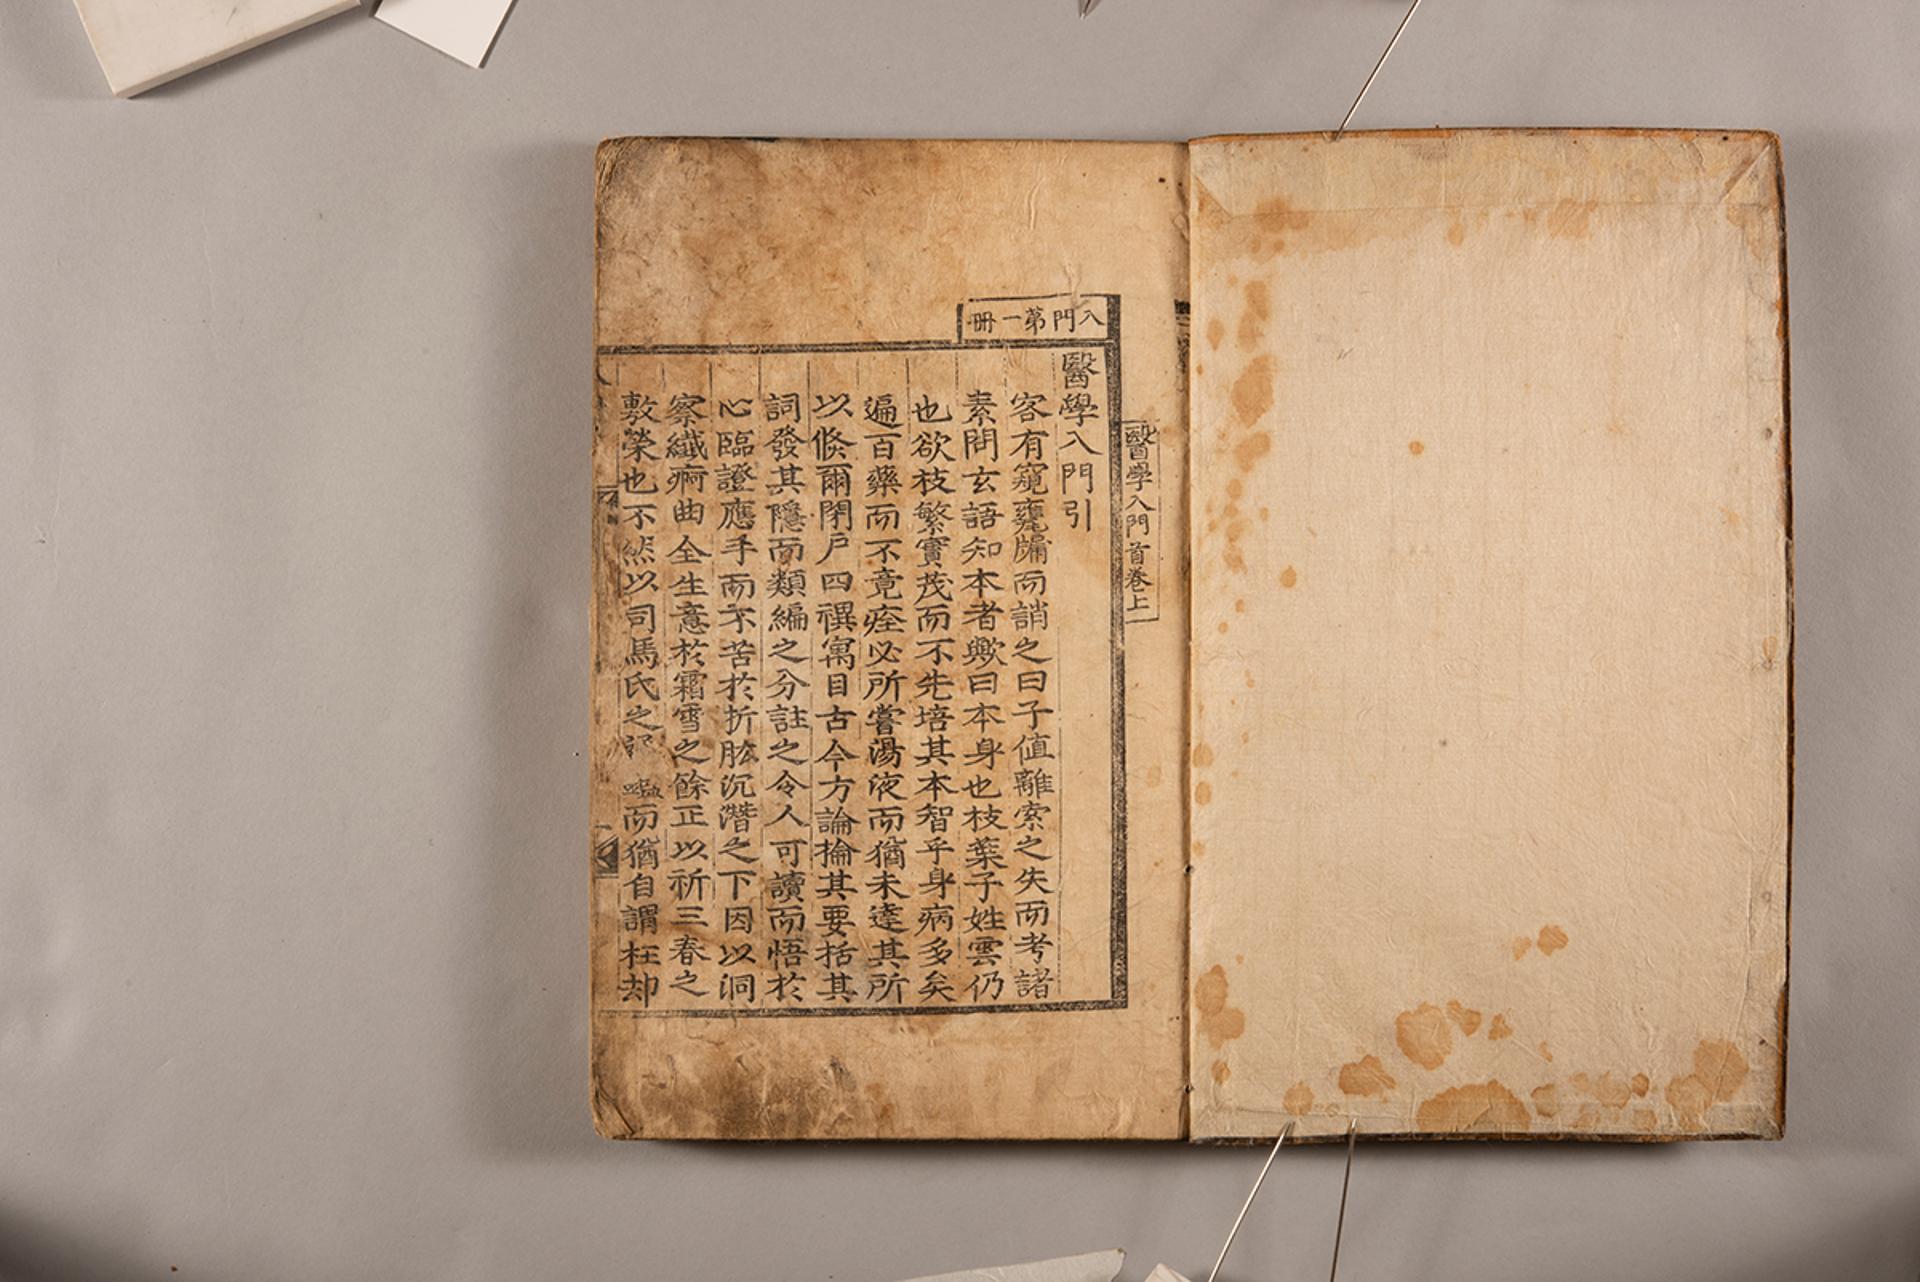 醫學入門首卷上
入門第一冊
醫學入門引
客有窺甕牖而誚之曰子值離索之失而考諸
素問玄語知本者歟曰本身也枝葉子姓雲仍
也欲枝繁實茂而不先培其本智乎身病多矣
遍百藥而不竟痊必所嘗湯液而猶未達其所
以倏爾閉戶四禩寓目古今方論掄其要括其
詞發其隱而類編之分註之令人可讀而悟於
心臨證應手而不苦於折肱沉潛之下因以洞
察纖痾曲全生意於霜雪之餘正以祈三春之
敷榮也不然以司馬氏之 而猶自謂枉却